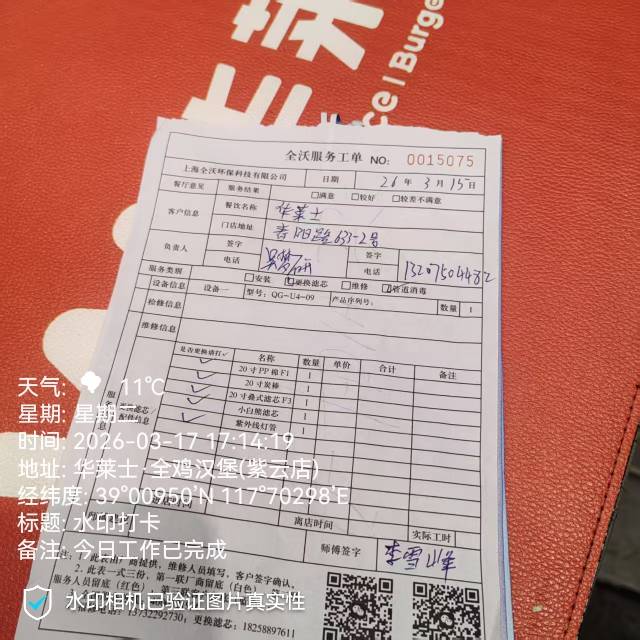 全沃服务工单 NO: 0015075
上海全沃环保科技有限公司 日期 26 年 3 月 15 日
餐厅意见 服务结果 □满意 □较好 □较差不满意
客户信息 餐饮名称 华莱士
门店地址 631-2号
负责人 签字
电话 电话
服务类别 □安装 更换滤芯 □维修 管道消毒
设备信息 设备一 型号: QG-U4-09 产品序列号: 数量 1
检修信息
维修信息
是否更换请打✓ 名称 数量 单价 合计 备注
✓ 20寸PP棉F1 1
✓ 20寸炭棒 1
✓ 20寸叠式滤芯F3 1
✓ 小白熊滤芯 1
✓ 紫外线灯管 1
配件信息
离店时间
实际工时
师傅签字 李雪峰
提供, 维修人员填写, 客户签字确认。
2. 此表一式三份, 第一联厂商留底(白色)
服务人员留底(红色)
13732292730; 更换滤芯: 18258897611
ce | Burge
天气: 11℃
星期: 星期二
时间: 2026-03-17 17:14:19
地址: 华莱士·全鸡汉堡(紫云店)
经纬度: 39°00950'N 117°70298'E
标题: 水印打卡
备注: 今日工作已完成
水印相机已验证图片真实性